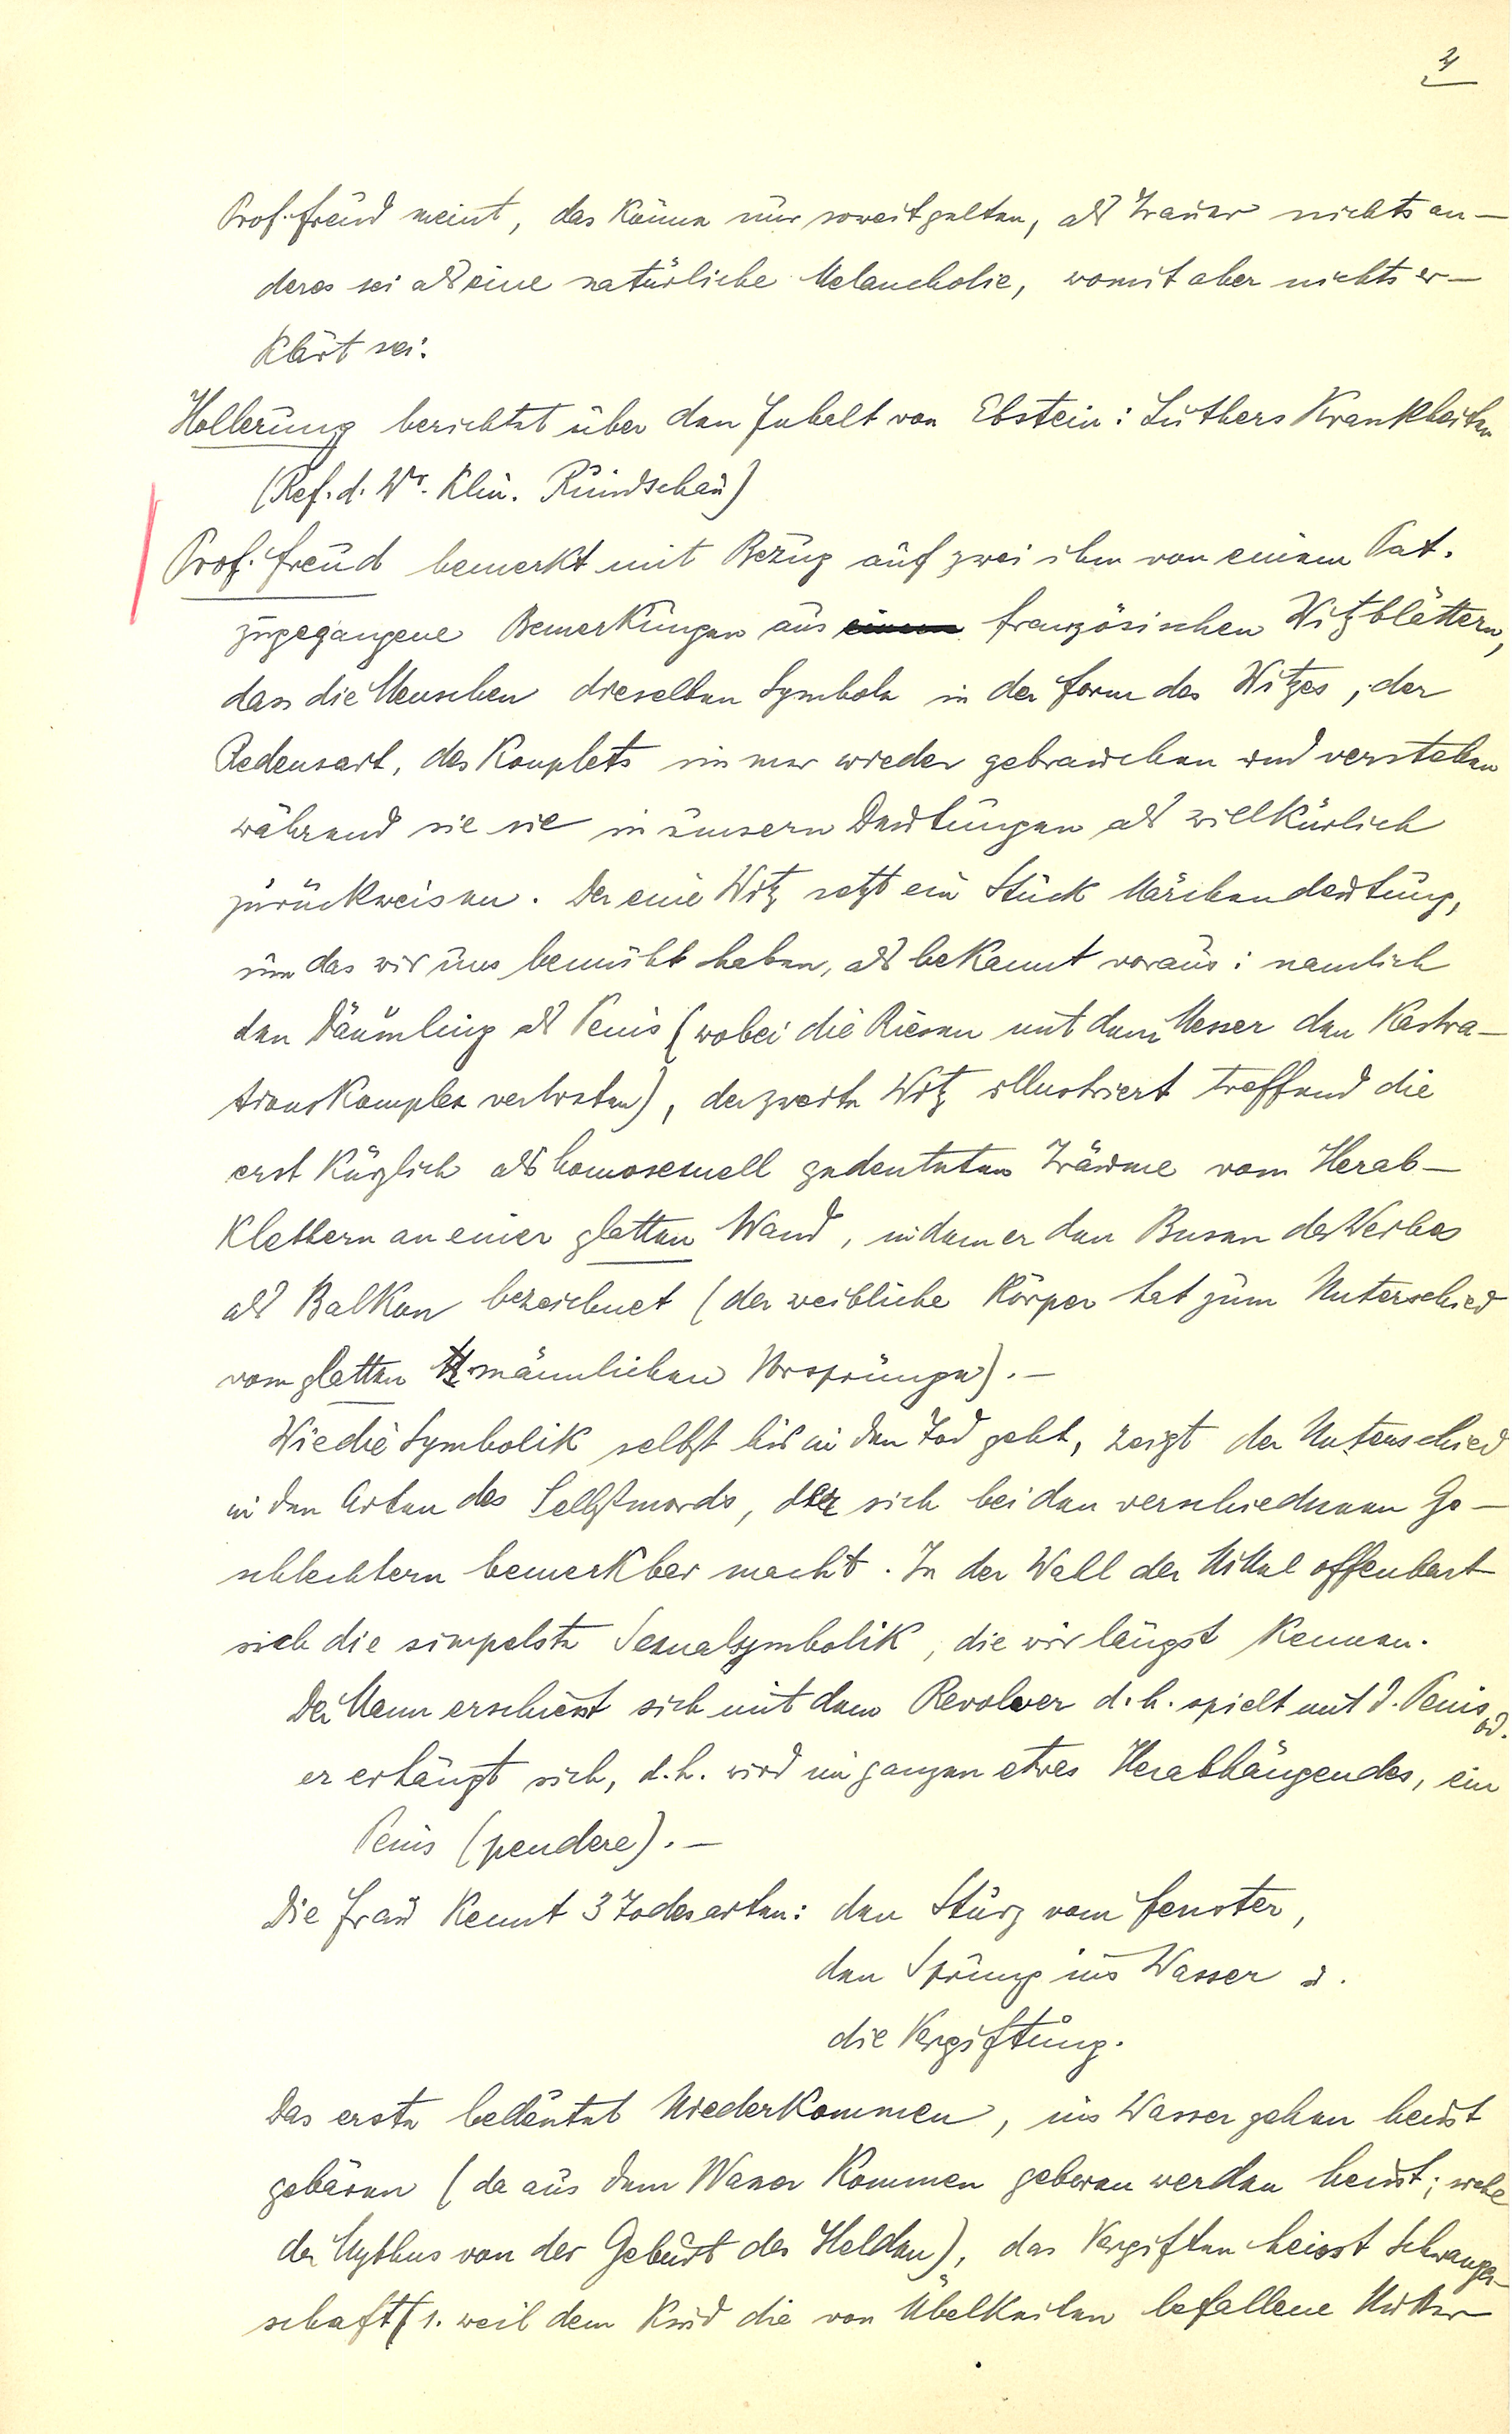 4
Prof. Freud meint, das könne nur soweit gelten, als Trauer nichts an-
deres sei als eine natürliche Melancholie, womit aber nichts er-
klärt sei.
Hollerung berichtet über den Inhalt von Ebstein: Luthers Krankheiten
(Ref. d. Wr. Klin. Rundschau)
Prof. Freud bemerkt mit Bezug auf zwei ihm von einem Pat.
zugegangene Bemerkungen aus einem französischen Witzblättern,
dass die Menschen dieselben Symbole in der Form des Witzes, der
Redensart, des Kouplets immer wieder gebrauchen und verstehen
während sie sie in unsern Deutungen als willkürlich
zurückweisen. Der eine Witz setzt ein Stück Märchendeutung,
um das wir uns bemüht haben, als bekannt voraus: namlich
den Däumling als Penis (wobei die Riesen mit dem Messer den Kastra-
tionskomplex vertreten), der zweite Witz illustriert treffend die
erst kürzlich als homosexuell gedeuteten Träume vom Herab-
klettern an einer glatten Wand, indem er den Busen des Weibes
als Balkon bezeichnet (der weibliche Körper hat zum Unterschied
vom glatten männlichen Vorsprünge). -
Wie die Symbolik selbst bis in den Tod geht, zeigt der Unterschied
in den Arten des Selbstmords, der sich bei den verschiedenen Ge-
schlechtern bemerkbar macht. In der Wahl der Mittel offenbart
sich die simpelste Sexualsymbolik, die wir längst kennen.
Der Mann erschiesst sich mit dem Revolver d. h. spielt mit d. Penis od.
er erhängt sich, d. h. wird im ganzen etwas Herabhängendes, ein
Penis (pendere). -
Die Frau kennt 3 Todesarten: den Sturz vom Fenster,
den Sprung ins Wasser u.
die Vergiftung.
Das erste bedeutet Niederkommen, ins Wasser gehen heisst
gebären (da aus dem Wasser kommen geboren werden heisst; siehe
der Mythus von der Geburt des Helden), das Vergiften heisst Schwanger-
schaft (1. weil dem Kind die von Übelkeiten befallene Mutter